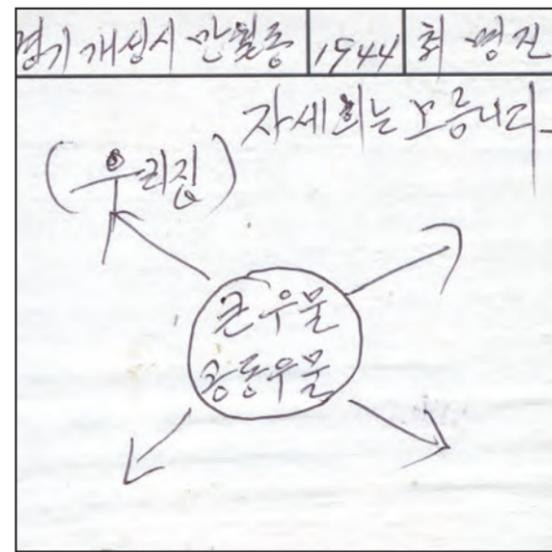 경기 개성시 만월동 1944 최 명진
자세희는 모릅니다.
(우리집)
큰우물
공동우물